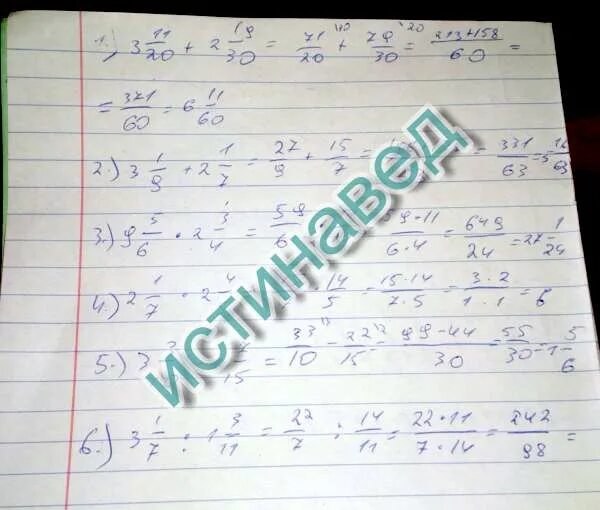 1.) 3 11/20 + 2 19/30 = 71/20 + 79/30 = 213+158/60 =
= 371/60 = 6 11/60
2.) 3 1/9 + 2 1/7 = 27/9 + 15/7 = = 331/63 = 5 16/63
3.) 9 5/6 · 2 3/4 = 59/6 59·11/6·4 = 649/24 = 27 1/24
4.) 2 1/7 · 2 4 14/5 = 15·14/7·5 = 3·2/1·1 = 6
5.) 3 15 = 33/10 - 22/15 = 99-44/30 = 55/30 = 1 5/6
6.) 3 1/7 : 1 3/11 = 22/7 : 14/11 = 22·11/7·14 = 242/98 =
ИСТИНАВЕД